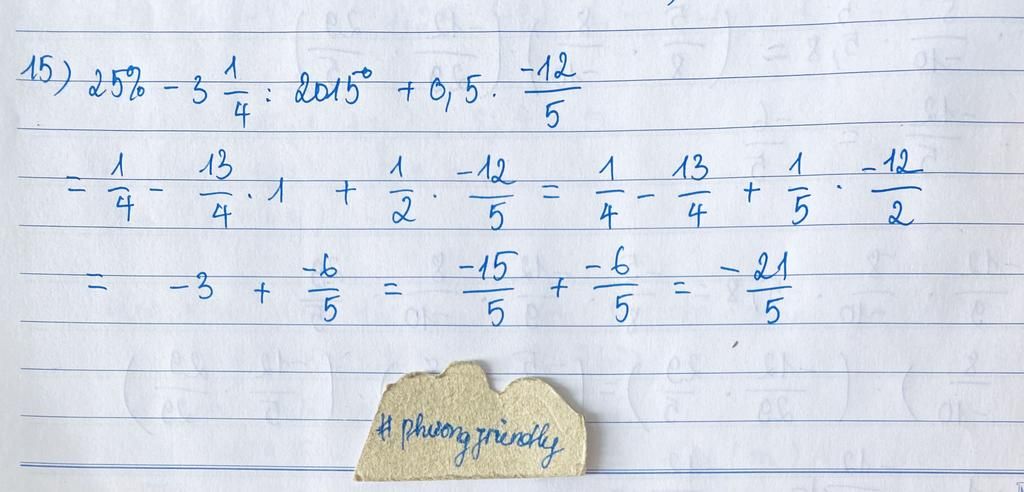 15) 25% - 3 1/4 : 2015⁰ + 0,5 . -12/5
= 1/4 - 13/4 . 1 + 1/2 . -12/5 = 1/4 - 13/4 + 1/5 . -12/2
= -3 + -6/5 = -15/5 + -6/5 = -21/5
# phuongfriendly